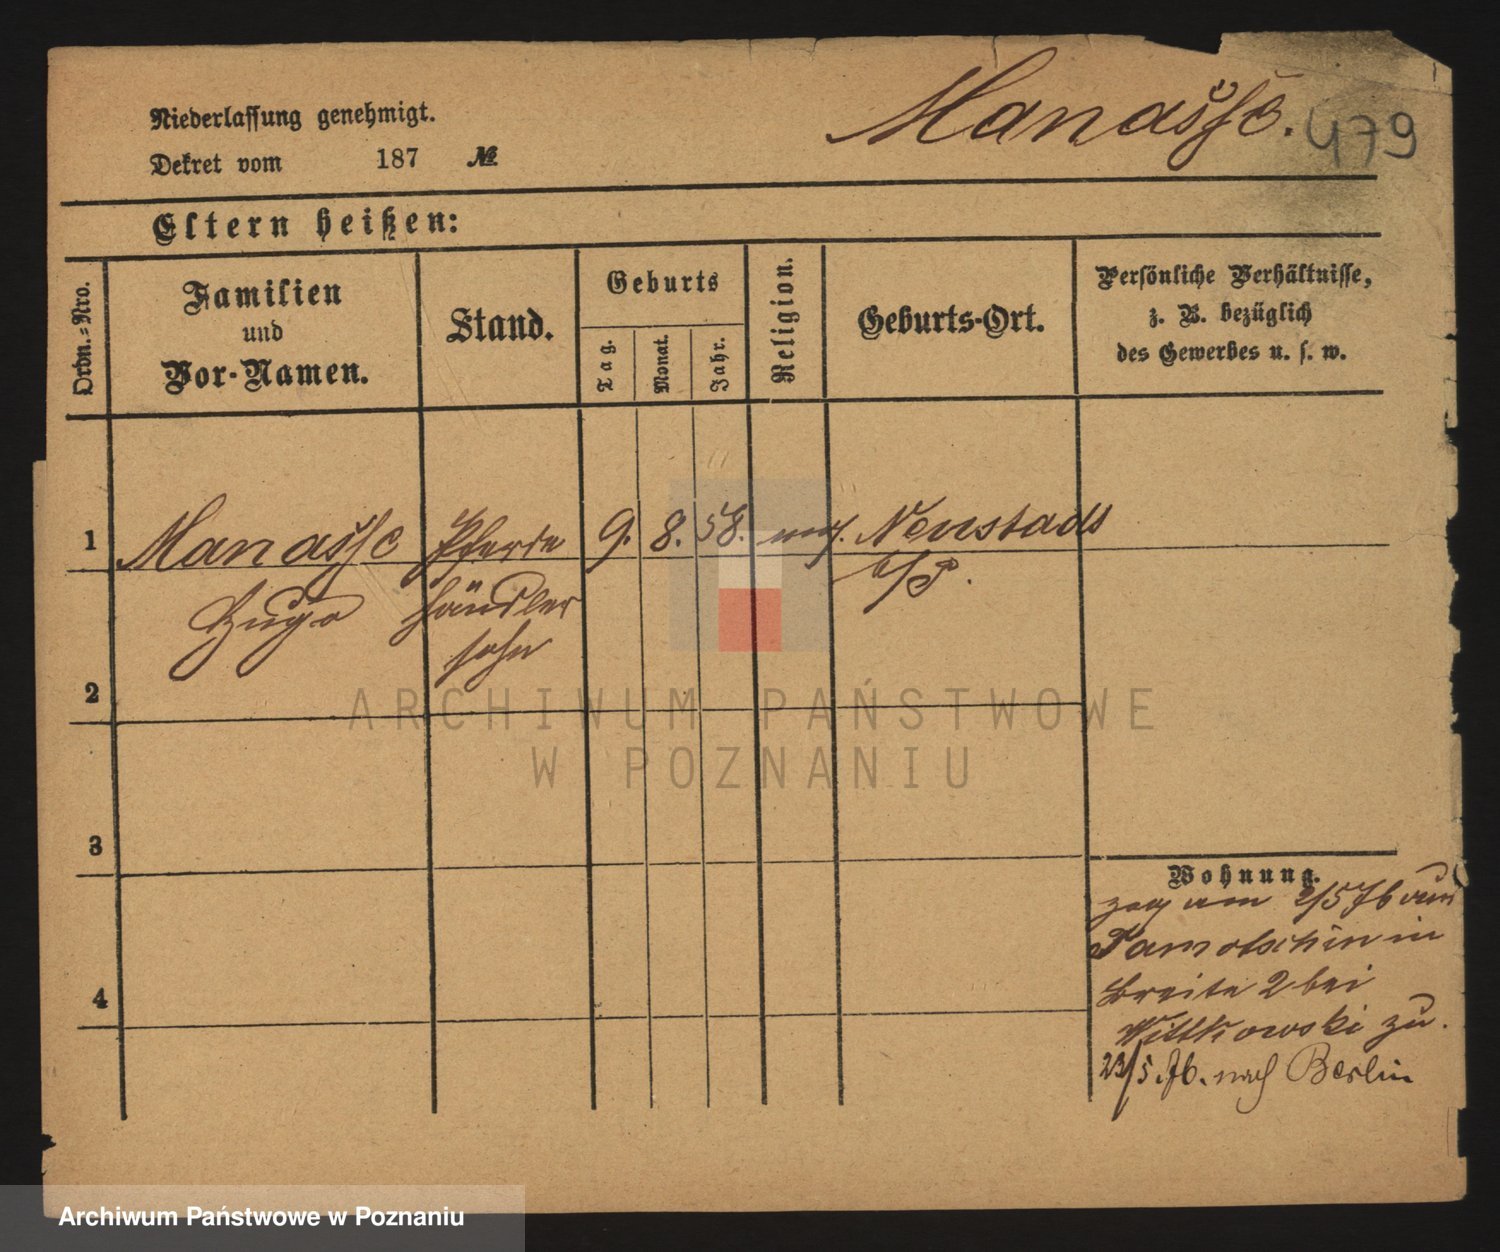 Niederlassung genehmigt.
Manasse.
479
Dekret vom 187 №
Eltern heißen:
Ordn.-Nro.
Familien
und
Vor-Namen.
Stand.
Geburts
Tag.
Monat.
Jahr.
Religion.
Geburts-Ort.
Persönliche Verhältnisse,
z. B. bezüglich
des Gewerbes u. s. w.
1 Manasse Pferde 9. 8. 58. mos. Neustadt
Hugo händler b/P.
sohn
2
3
4
Wohnung.
zog am 2/5 76 aus
Samotschin in
Breite 2 bei
Wittkowski zu.
23/5.76. nach Berlin
ARCHIWUM PAŃSTWOWE
W POZNANIU
Archiwum Państwowe w Poznaniu